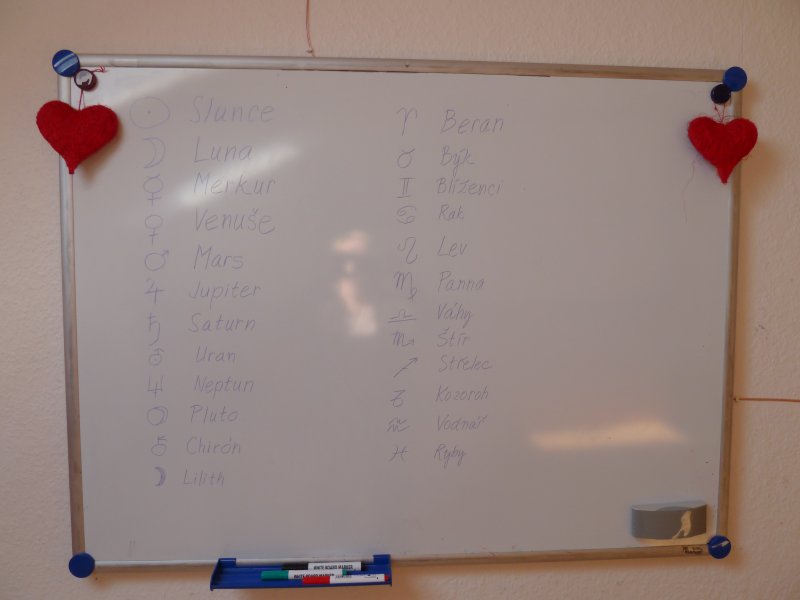 ☉ Slunce
☽ Luna
☿ Merkur
♀ Venuše
♂ Mars
♃ Jupiter
♄ Saturn
⛢ Uran
♆ Neptun
Pluto
⚷ Chirón
⚸ Lilith
♈ Beran
♉ Býk
♊ Blíženci
♋ Rak
♌ Lev
♍ Panna
♎ Váhy
♏ Štír
♐ Střelec
♑ Kozoroh
♒ Vodnář
♓ Ryby
WHITE BOARD MARKER
WHITE BOARD MARKER